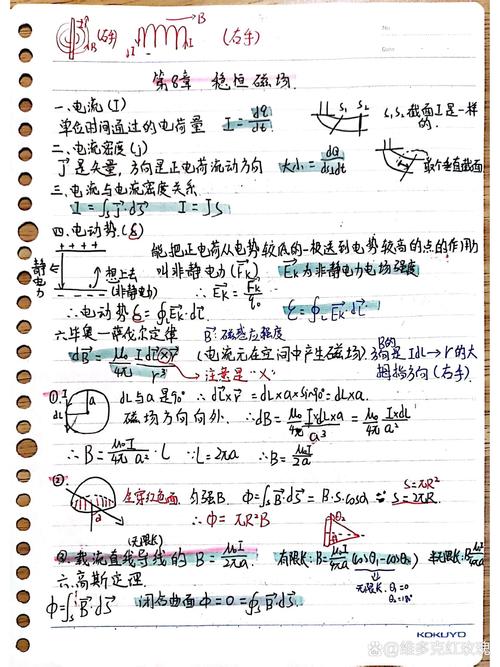 I B (右手) I I B (右手)
No.
Date
第8章 稳恒磁场.
一、电流(I)
单位时间通过的电荷量 I=dq/dt. S₁ S₂ S₁,S₂截面I是一样的.
二、电流密度(j)
J是矢量,方向是正电荷流动方向 大小=dQ/ds⊥dt 取个垂直截面
三、电流与电流密度关系
I=∫ₛJ⃗·dS⃗ I=JS
四、电动势(ε)
++++ 能把正电荷从电势较低的一极送到电势较高的点的作用力
静电力 想上去(非静电力) 叫非静电力(F⃗k) E⃗k为非静电力电场强度
∴E⃗k=F⃗k/q₀
∴电动势ε=∮E⃗k·dl⃗. ε=∮_L E⃗k·dl⃗.
六、毕奥一萨伐尔定律 B⃗:磁感应强度
dB⃗=μ₀/4π Idl⃗×r⃗/r³ (电流元在空间中产生磁场) B的方向是Idl→r的大拇指方向(右手)
注意是"×"
① I dL a dL与a是90° ∴dl⃗×r⃗=dL×a×sin90°=dL×a.
磁场方向向外. ∴dB=μ₀/4π I×dL×a/a³=μ₀/4π I×dL/a²
∴B=μ₀I/4π a²·L ∵L=2πa ∴B=μ₀I/2a
② 在穿红色面 匀强B. Φ=∫ₛB⃗·dS⃗=B·S·cosα S=πR² S=2πR.
∴Φ=πR²B
(无限长)
④.载流直线导线的B=μ₀I/2πa. θ₂ 有限长:B=μ₀I/4πa(cosθ₁-cosθ₂)
无限长:θ₁=0
六、高斯定理.
Φ=∫ₛB⃗·dS⃗ 闭合曲面Φ=0=∮ₛB⃗·dS⃗.
KOKUYO
@维多克红玫瑰